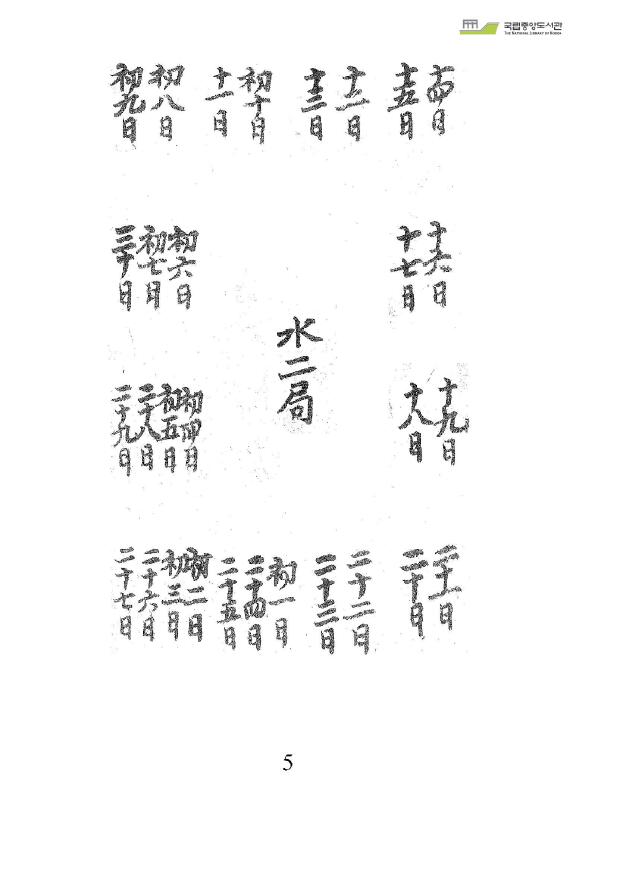 국립중앙도서관
THE NATIONAL LIBRARY OF KOREA
十四日
十五日
十二日
十三日
初十日
十一日
初八日
初九日
十六日
十七日
初六日
初七日
三十日
水二局
十九日
十八日
初四日
初五日
二十八日
二十九日
二十一日
二十日
二十二日
二十三日
初一日
二十四日
二十五日
初二日
初三日
二十六日
二十七日
5